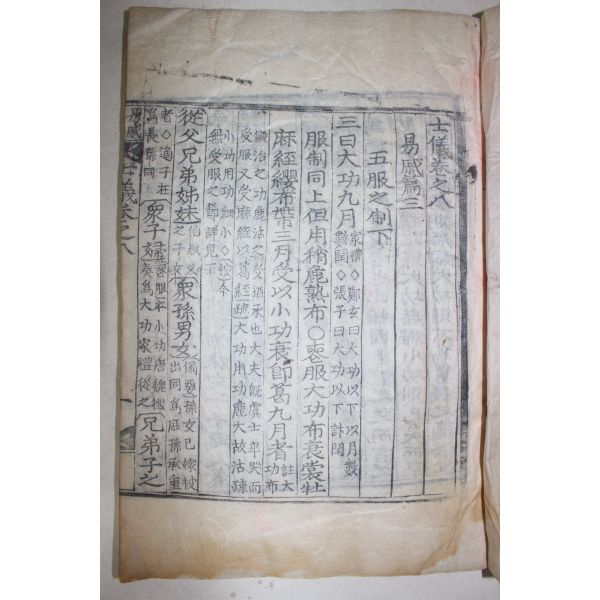 士儀卷之八
易戚篇三
五服之制下
三曰大功九月 家禮◇鄭玄曰大功以下以月數
數閏◇張子曰大功以下計閏
服制同上但用稍麁熟布○喪服大功布衰裳牡
麻絰纓布帶三月受以小功衰卽葛九月者 註大
功布
鍛治之功麁沽之◇受猶承也大夫旣虞士卒哭而
受服又受麻絰以葛絰疏大功用功麁大故沽疎
小功用功細小◇按今
無受服之節詳見
從父兄弟姊妹 伯叔父
之子女 衆孫男女 備要孫女已嫁被
出同爲庶孫承重
者◇適子在
爲長孫同 衆子婦 喪服本小功唐魏徵
奏爲大功家禮從之 兄弟子之
易戚 士儀卷之八 一